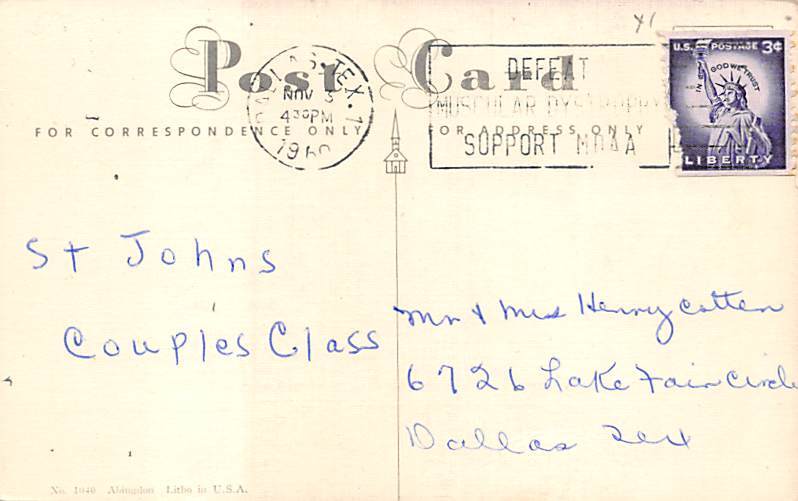 Post Card
FOR CORRESPONDENCE ONLY
FOR ADDRESS ONLY
DALLAS, TEX. 1
NOV 3
4 30 PM
1960
DEFEAT
MUSCULAR DYSTROPHY
SUPPORT MDAA
U.S. POSTAGE 3¢
IN GOD WE TRUST
LIBERTY
St Johns
Couples Class
Mr & Mrs Henry Cotten
6726 Lake Fair Circle
Dallas Tex
No. 1040 Abingdon Litho in U.S.A.